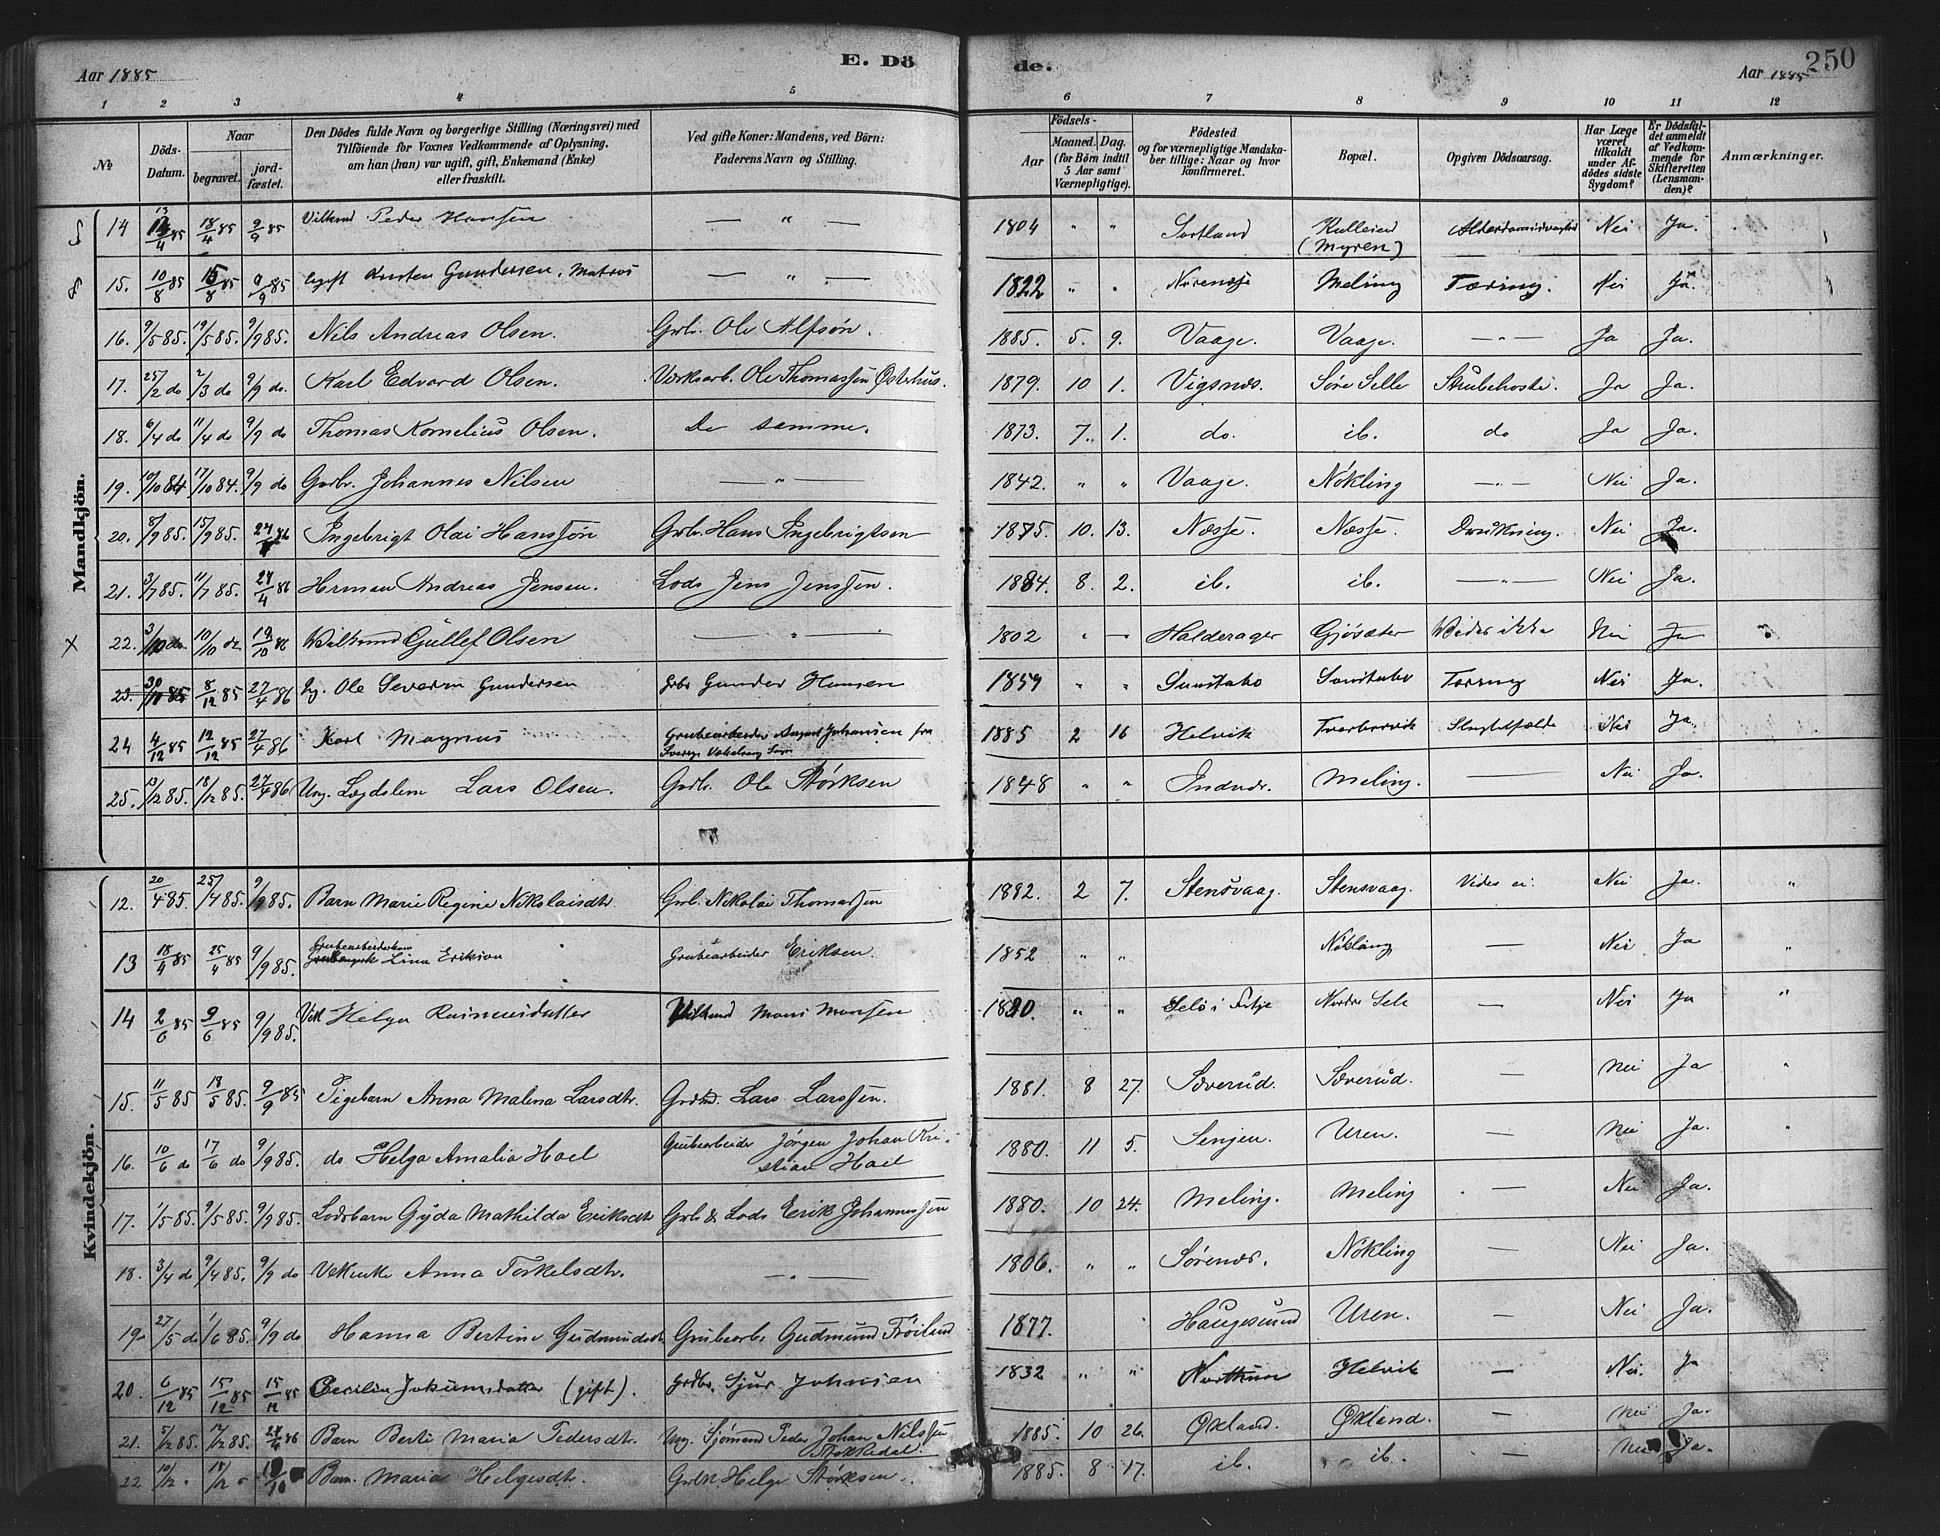 Aar 1885
E. Dö
de.
Aar 1885
250
1 2 3 4 5 6 7 8 9 10 11 12
№
Döds-Datum.
Naar
begravet.
jord-fæstet.
Den Dödes fulde Navn og borgerlige Stilling (Næringsvei) med
Tilföiende for Voxnes Vedkommende af Oplysning,
om han (han) var ugift, gift, Enkemand (Enke)
eller fraskilt.
Ved gifte Koner: Mandens, ved Börn:
Faderens Navn og Stilling.
Födsels-
Aar
Maaned. Dag.
(for Börn indtil
5 Aar samt
Værnepligtige).
Födested
og for værnepligtige Mandska-
ber tillige: Naar og hvor
konfirmeret.
Bopæl.
Opgiven Dödsaarsag.
Har Læge
været
tilkaldt
under Af-
dödes sidste
Sygdom?
Er Dödsfal-
det anmeldt
af Vedkom-
mende for
Skifteretten
(Lensman-
den)?
Anmærkninger.
Mandkjön.
14 13/4 85 18/4 85 9/9 85 Peder Hansen — " — 1804 " " Sortland (Myren) Nei Ja.
15. 10/8 85 15/8 85 9/9 85 Gundersen, Matros — " — 1822 " " Meling Tæring. Nei Ja.
16. 9/5 85. 19/5 85. 9/9 85. Nils Andreas Olsen. Grb. Ole Alfsön. 1885. 5. 9. Vaage. Vaage. — " — Ja Ja.
17. 25/2 do 2/3 do 9/9 do. Karl Edvard Olsen. Værksarb. Ole Thomassen Østerhus. 1879. 10 1. Vigsnæs. Søre Selle Strubehoste. Ja Ja.
18. 6/4 do 11/4 do 9/9 do Thomas Kornelius Olsen. De samme. 1873. 7. 1. do. ib. do Ja Ja.
19. 10/10 84 17/10 84. 9/9 do Garbr. Johannes Nilsen — " — 1842. " " Vaage. Nökling — " — Nei Ja.
20. 8/9 85. 15/9 85. 27/4 86 Ingebrigt Olai Hanssön Grb. Hans Ingebrigtsen 1875. 10. 13. Næsse. Næsse. Drukning. Nei Ja.
21. 3/7 85. 11/7 85. 27/4 86 Herman Andreas Jensen. Lods Jens Jenssen. 1884. 8. 2. ib. ib. — " — Nei Ja.
22. 3/10 do. 10/10 do 19/10 86 Gullef Olsen — " — 1802 " — Halderager Gjösæter Vides ikke Nei Ja
23. 8/12 85 27/4 86 Ug. Ole Severin Gundersen Grbr Gunder Hansen 1859 " " Tæring Nei Ja.
24 4/12 85 12/12 85 27/4 86 Karl Magnus Grubearbeider August Johansen fra 1885 2 16 Helvik Nei Ja
25. 13/12 85. 18/12 85. 27/4 86 Ung. Lægdslem Lars Olsen. Grdb. Ole Störksen 1848 " " Indndr. Meling. — Nei Ja.
Kvindekjön.
12. 20/4 85. 25/4 85. 9/9 85. Barn Marie Regine Nikolaisdtr. Grb. Nikolai Thomassen 1882. 2 7. Stensvaag. Stensvaag. Vides ei. Nei Ja. "
13 18/4 85 25/4 85 9/9 85. Lina Erikson Grubearbeider Eriksen. 1852 " " Nökling — Nei Ja "
14 2/6 85 9/6 85 9/9 85. Helga Rasmusdatter Mons Monsen " " Nordre Sele — Nei Ja "
15. 11/5 85 18/5 85. 9/9 85 Pigebarn Anna Malena Larsdtr. Lars Larssen. 1881. 8 27. Sæverud. Sæverud. — Nei Ja "
16. 10/6 do 17/6 do 9/9 85. do Helga Amalia Hoel Grubearbeider Jörgen Johan Kri-
stian Hoel 1880. 11 5. Senjen. Uren. — Nei Ja. "
17. 1/5 85. 9/5 85. 9/9 85. Lodsbarn Gyda Mathilda Eriksdtr Grb & Lods Erik Johannessen 1880. 10 24. Meling. Meling — Nei Ja.
18. 3/4 do 9/4 85. 9/9 do Anna Torkelsdtr. — " — 1806. " " Sørenæs. Nökling — Nei Ja.
19. 27/5 do 1/6 85. 9/9 do Hanna Bertine Gudmundsdtr Grubearbr Gudmund Fröiland 1877. Haugesund Uren. — Nei Ja.
20. 6/12 85 15/12 85 15/12 85 Cecilie Jokumsdatter (gift). Grdbr. Sjur Johnsen 1832 " " Helvik — Nei. Ja
21. 5/12 85. 12/12 85. 27/4 86 Barn Berte Maria Pedersdtr. Ung. Sjømand Peder Johan Nilssen
Stokkedal. 1885. 10 26. Øxland. Øxland. — Nei Ja.
22 10/12 " 15/12 " Barn Maria Helgesdtr. Grbr Helge Störksen. 1885. 8 17. ib. ib. — Nei Ja.